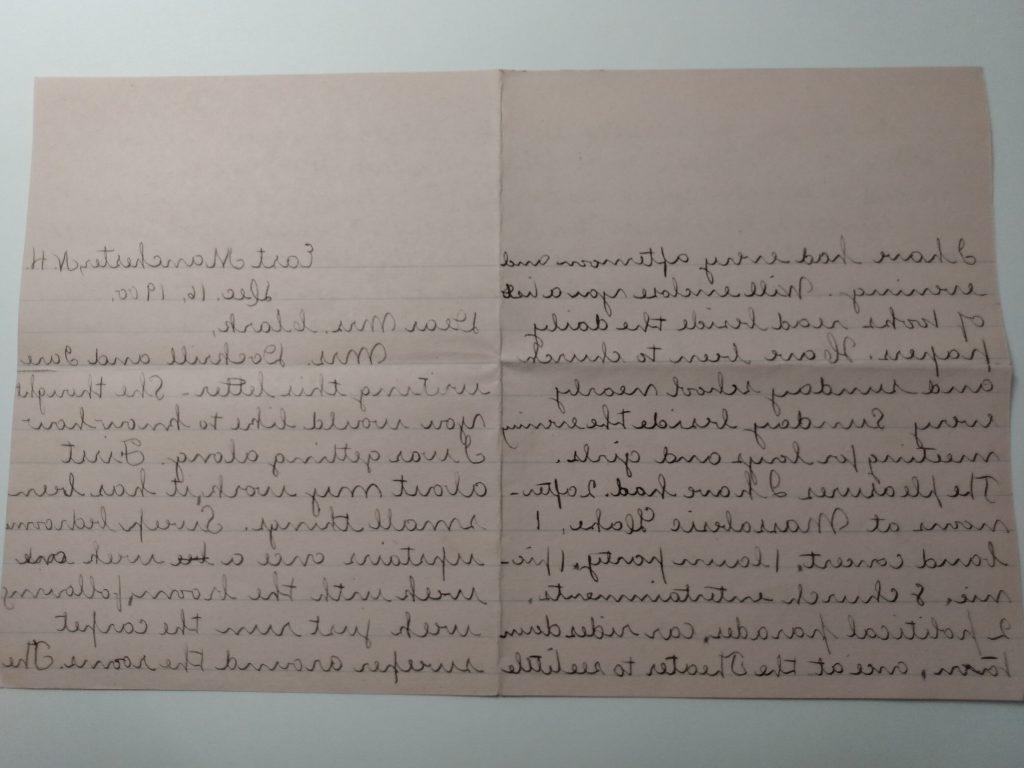 East Manchester, N.H.
Dec. 16, 1900.
Dear Mrs. Clark,
Mrs. and I are
writing this letter. She thought
you would like to know how
I was getting along. First
about my work, it has been
small things. Sweep bedroom
upstairs once a week one
week with the broom, following
week just run the carpet
sweeper around the rooms. The
I have had every afternoon and
evening. Will enclose you a list
of books read beside the daily
papers. Have been to church
and sunday school nearly
every Sunday beside the evening
meeting for boys and girls.
The pleasures I have had. 2 after-
noons at Massabesic Lake, 1
band concert, 1 lawn party, 1 pic-
nic, 8 church entertainments,
2 political parades, car rides down
town, once at the Theater to see little